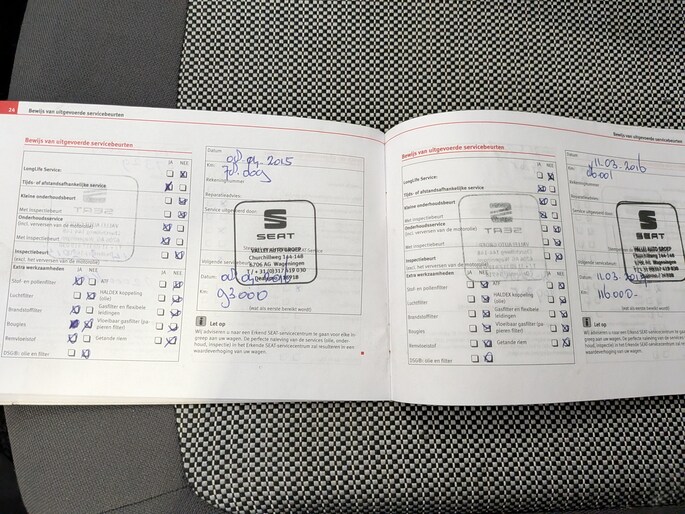 24
Bewijs van uitgevoerde servicebeurten
Bewijs van uitgevoerde servicebeurten
JA NEE
LongLife Service:
Tijds- of afstandsafhankelijke service
Kleine onderhoudsbeurt
Met inspectiebeurt
Onderhoudsservice
(incl. verversen van de motorolie)
Met inspectiebeurt
Inspectiebeurt
(excl. het verversen van de motorolie)
Extra werkzaamheden
JA NEE
JA NEE
Stof- en pollenfilter
ATF
Luchtfilter
HALDEX koppeling
(olie)
Brandstoffilter
Gasfilter en flexibele
leidingen
Bougies
Vloeibaar gasfilter (pa-
pieren filter)
Remvloeistof
Getande riem
DSG®: olie en filter
Datum
2015
Km:
Rekeningnummer
Reparatieadvies:
Service uitgevoerd door:
SEAT
VALLEI AUTO GROEP
Churchillweg 144-148
6706 AG Wageningen
Datum
Km:
93000
(wat als eerste bereikt wordt)
Let op
Wij adviseren u naar een Erkend SEAT servicecentrum te gaan voor elke in-
greep aan uw wagen. De perfecte naleving van de services (olie, onder-
houd, inspectie) in het Erkende SEAT servicecentrum zal resulteren in een
waardeverhoging aan uw wagen.
Bewijs van uitgevoerde servicebeurten
Bewijs van uitgevoerde servicebeurten
JA NEE
LongLife Service:
Tijds- of afstandsafhankelijke service
Kleine onderhoudsbeurt
Met inspectiebeurt
Onderhoudsservice
(incl. verversen van de motorolie)
Met inspectiebeurt
Inspectiebeurt
(excl. het verversen van de motorolie)
Extra werkzaamheden
JA NEE
JA NEE
Stof- en pollenfilter
ATF
Luchtfilter
HALDEX koppeling
(olie)
Brandstoffilter
Gasfilter en flexibele
leidingen
Bougies
Vloeibaar gasfilter (pa-
pieren filter)
Remvloeistof
Getande riem
DSG®: olie en filter
Datum
11.03-2016
Km:
Rekeningnummer
Reparatieadvies:
Service uitgevoerd door:
SEAT
VALLEI AUTO GROEP
Churchillweg 144-148
Wageningen
Datum
11.03
Km:
116000-
(wat als eerste bereikt wordt)
Let op
Wij adviseren u naar een Erkend SEAT servicecentrum te gaan voor elke in-
greep aan uw wagen. De perfecte naleving van de services (olie, onder-
houd, inspectie) in het Erkende SEAT servicecentrum zal resulteren in een
waardeverhoging aan uw wagen.